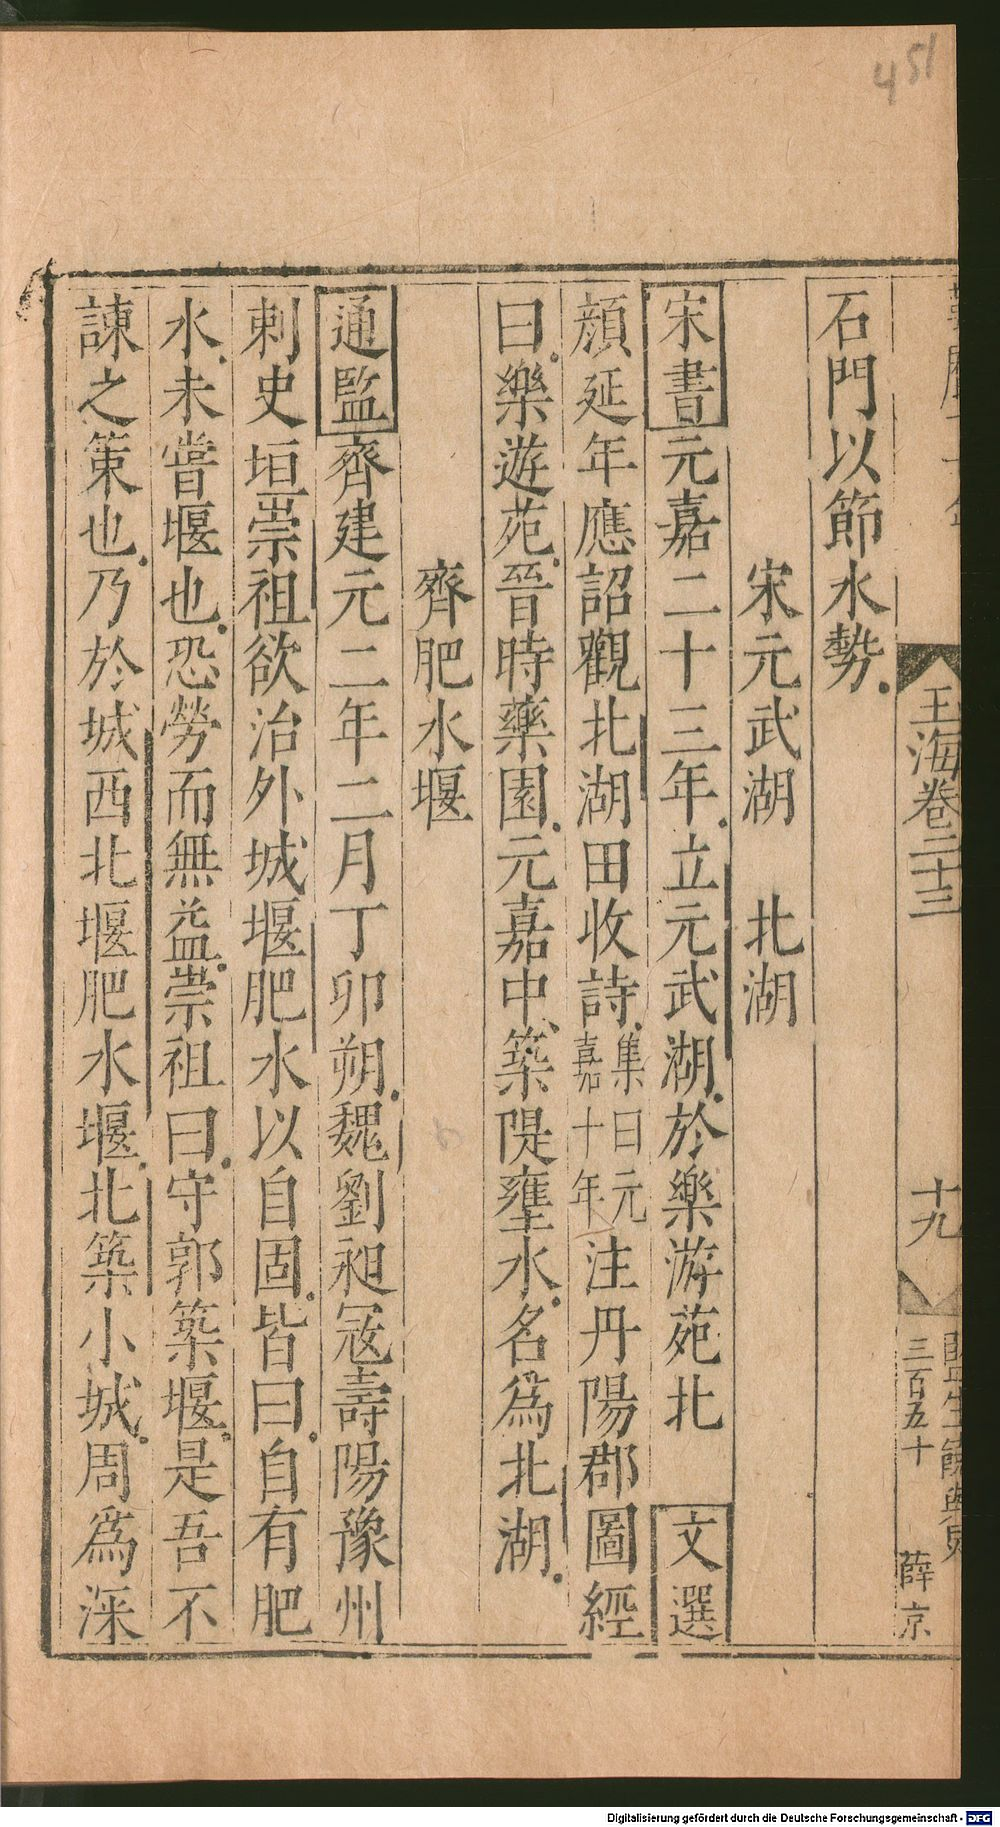 451
玉海卷二十三
十九
三百五十
薛京
石門以節水勢
宋元武湖 北湖
宋書元嘉二十三年立元武湖於樂游苑北 文選
顔延年應詔觀北湖田收詩集曰元嘉十年注丹陽郡圖經
曰樂遊苑晉時藥園元嘉中築隄壅水名爲北湖
齊肥水堰
通監齊建元二年二月丁卯朔魏劉昶冦壽陽豫州
刺史垣崇祖欲治外城堰肥水以自固皆曰自有肥
水未嘗堰也恐勞而無益崇祖曰守郭築堰是吾不
諫之策也乃於城西北堰肥水堰北築小城周爲深
Digitalisierung gefördert durch die Deutsche Forschungsgemeinschaft - DFG